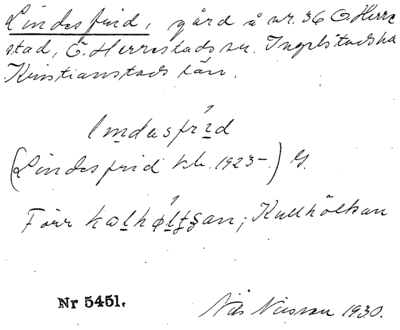 Lindesfrid, gård å nr. 36 Ö Herre
stad, Ö. Herrestads sn. Ingelstads ha
Kristianstads län.
lindasfrid
(Lindesfrid kb. 1923-) G.
Förr Kullhölkan
Nr 5451.
Nils Nilsson 1930.